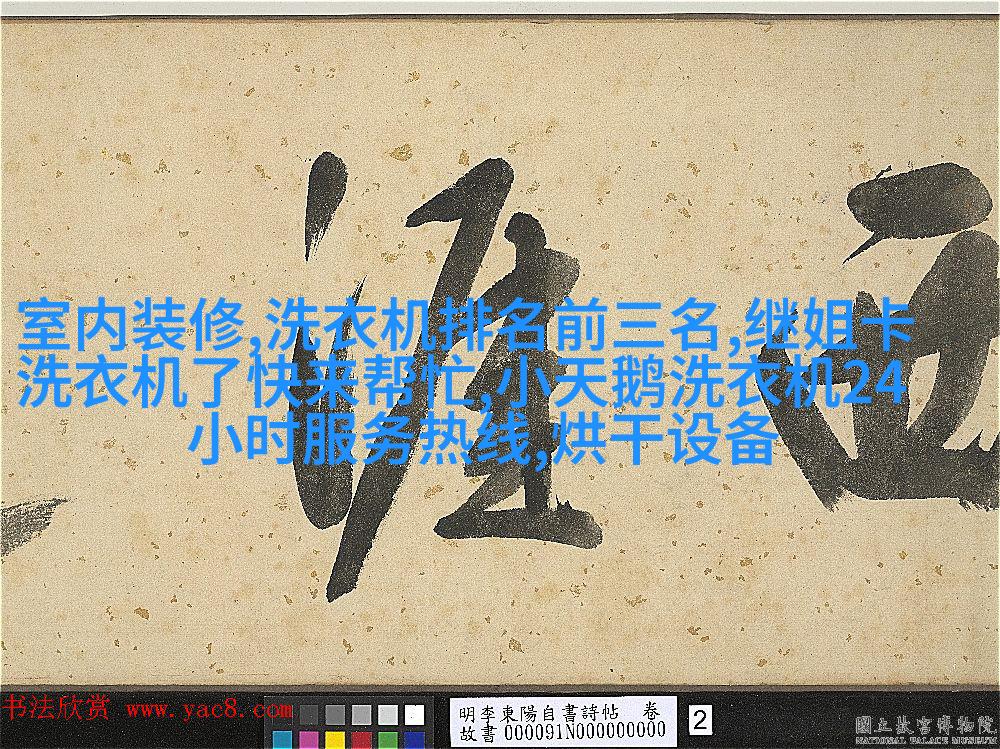 西涯
室内装修,洗衣机排名前三名,继姐卡
洗衣机了快来帮忙,小天鹅洗衣机24
小时服务热线,烘干设备
书法欣赏 www.yac8.com
明李東陽自書詩帖 卷
故書 000091N000000000
2
國立故宮博物院
NATIONAL PALACE MUSEUM